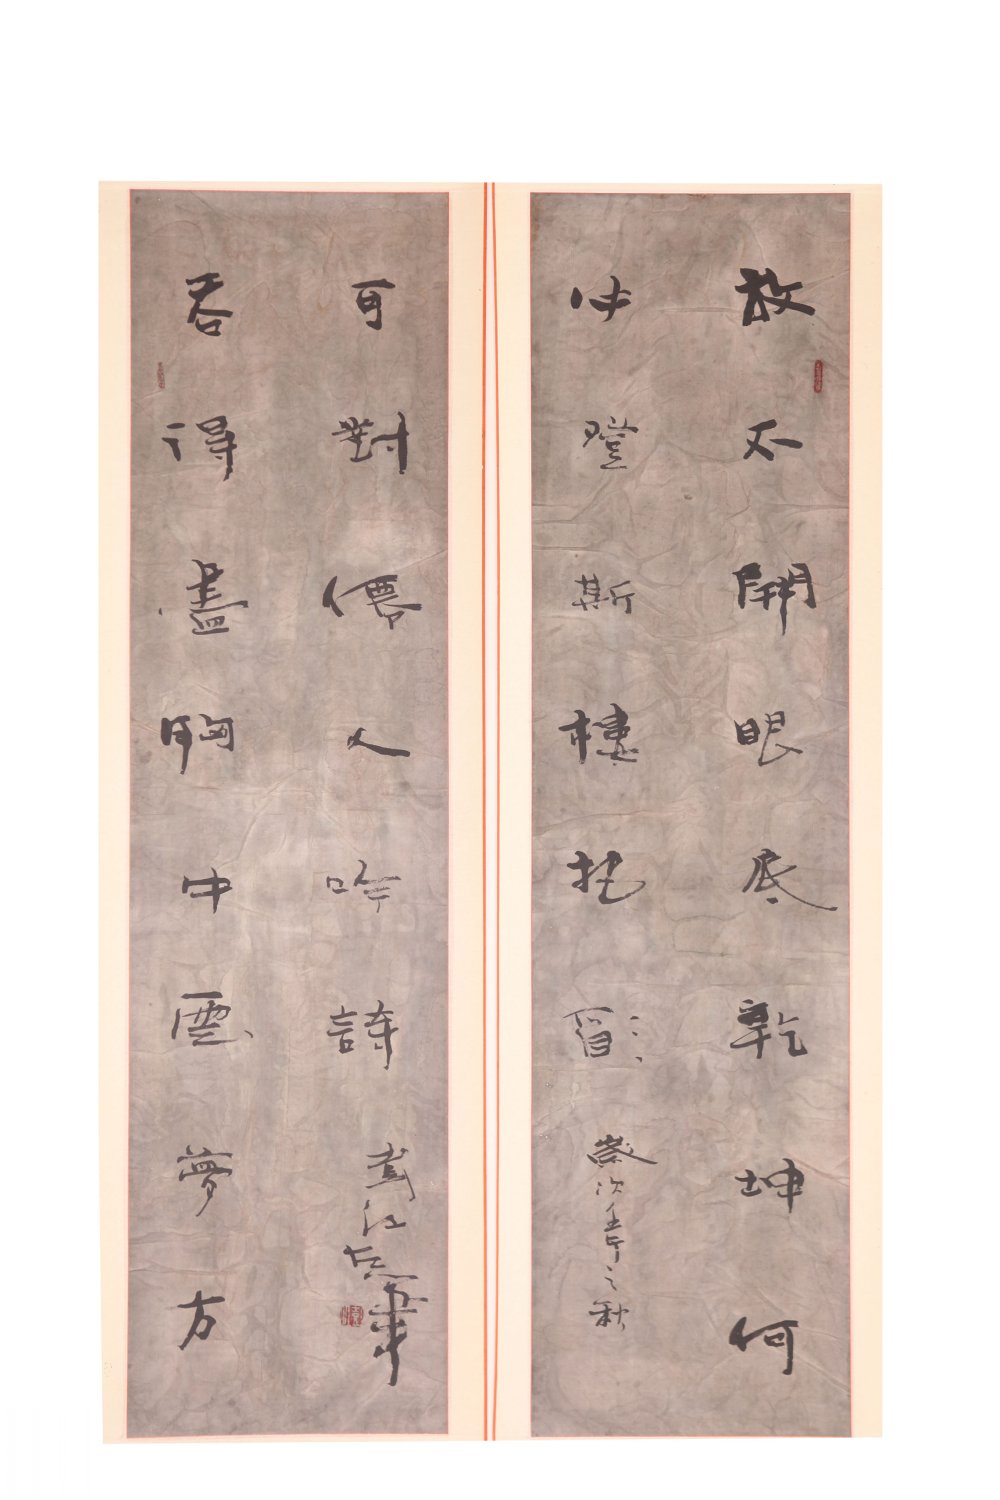 放不開眼底乾坤何
必登斯樓把酒
歲次壬午之秋
吞得盡胸中雲夢方
可對僊人吟詩